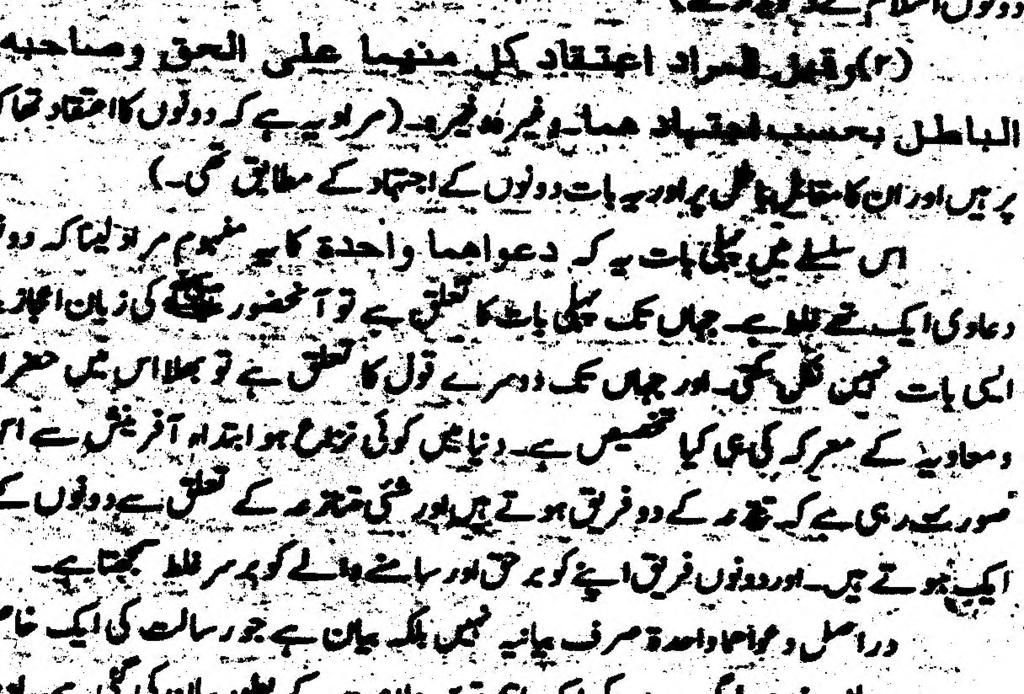 دونوں اسلام کے
(۲) وقیل المراد اعتقاد کل منهما علی الحق وصاحبه
الباطل بحسب اجتهاد هما۔ وغیر ۔ (مراد یہ ہے کہ دونوں کا اعتقاد تھا
پر ہیں اور ان کا مقابل باطل پر اور یہ بات دونوں کے اجتہاد کے مطابق تھی۔)
اس سلسلے میں پہلی بات یہ کہ دعواهما واحدة کا یہ مفہوم مراد لینا کہ
دعاوی ایک تھے غلط ہے۔ جہاں تک پہلی بات کا تعلق ہے تو آنحضور ﷺ کی زبان
ایسی بات نہیں نکل سکتی۔ اور جہاں تک دوسرے قول کا تعلق ہے تو بھلا اس میں
و معاویہ کے معرکہ کی ہی کیا تخصیص ہے۔ دنیا میں کوئی نزاع ہو ابتداء آفرینش سے
صورت رہی ہے کہ کے دو فریق ہوتے ہیں اور شئی متنازعہ کے تعلق سے دونوں کے
ایک ہوتے ہیں۔ اور دونوں فریق اپنے کو برحق اور سامنے والے کو برسر غلط سمجھتا ہے۔
دراصل دعواهما واحدة صرف بیانیہ نہیں بلکہ بیان ہے جو رسالت کی ایک